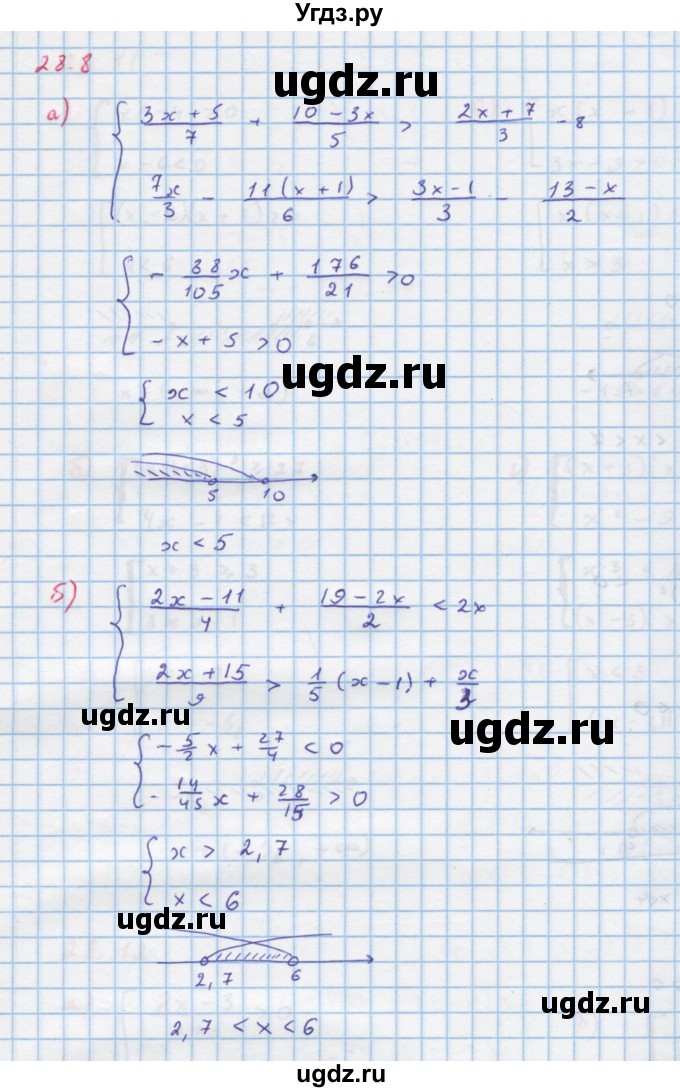 Угдз.ру
28.8
ugdz.ru
а) { (3x + 5)/7 + (10 - 3x)/5 > (2x + 7)/3 - 8
7x/3 - 11(x + 1)/6 > (3x - 1)/3 - (13 - x)/2
{ - 88/105 x + 176/21 > 0
- x + 5 > 0
ugdz.ru
{ x < 10
x < 5
5 10
x < 5
б) { (2x - 11)/4 + (19 - 2x)/2 < 2x
(2x + 15)/9 > 1/5 (x - 1) + x/3
ugdz.ru ugdz.ru
{ - 5/2 x + 27/4 < 0
- 14/45 x + 28/15 > 0
{ x > 2,7
x < 6
ugdz.ru
2,7 6
ugdz.ru
2,7 < x < 6
ugdz.ru